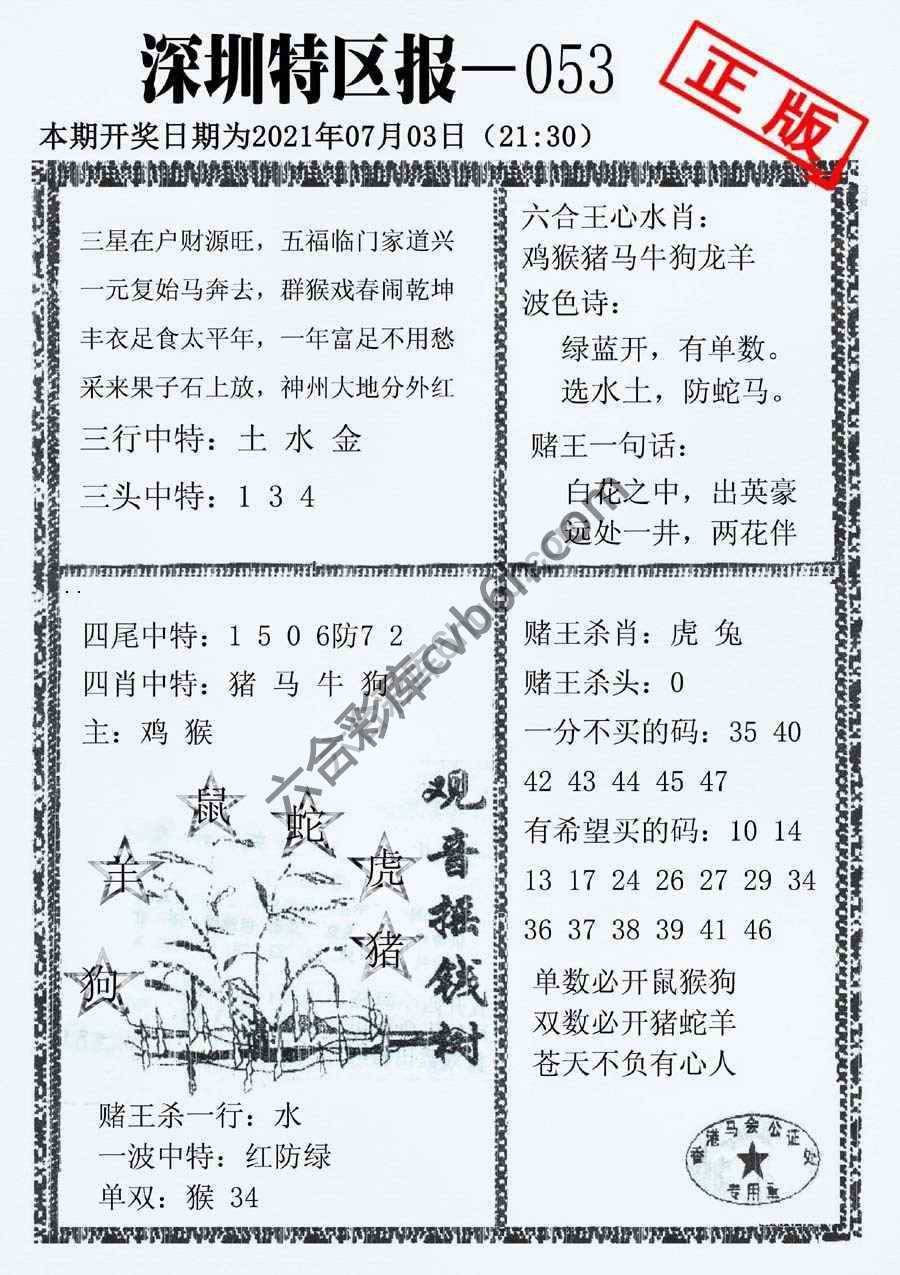 深圳特区报—053
正版
本期开奖日期为2021年07月03日（21:30）
三星在户财源旺，五福临门家道兴
一元复始马奔去，群猴戏春闹乾坤
丰衣足食太平年，一年富足不用愁
采来果子石上放，神州大地分外红
三行中特：土 水 金
三头中特：1 3 4
六合王心水肖：
鸡猴猪马牛狗龙羊
波色诗：
绿蓝开，有单数。
选水土，防蛇马。
赌王一句话：
白花之中，出英豪
远处一井，两花伴
四尾中特：1 5 0 6防7 2
四肖中特：猪 马 牛 狗
主：鸡 猴
鼠
蛇
羊
虎
猪
狗
观音摇钱树
赌王杀一行：水
一波中特：红防绿
单双：猴 34
赌王杀肖：虎 兔
赌王杀头：0
一分不买的码：35 40
42 43 44 45 47
有希望买的码：10 14
13 17 24 26 27 29 34
36 37 38 39 41 46
单数必开鼠猴狗
双数必开猪蛇羊
苍天不负有心人
香港马会公证处
专用章
六合彩库cvb6h.com